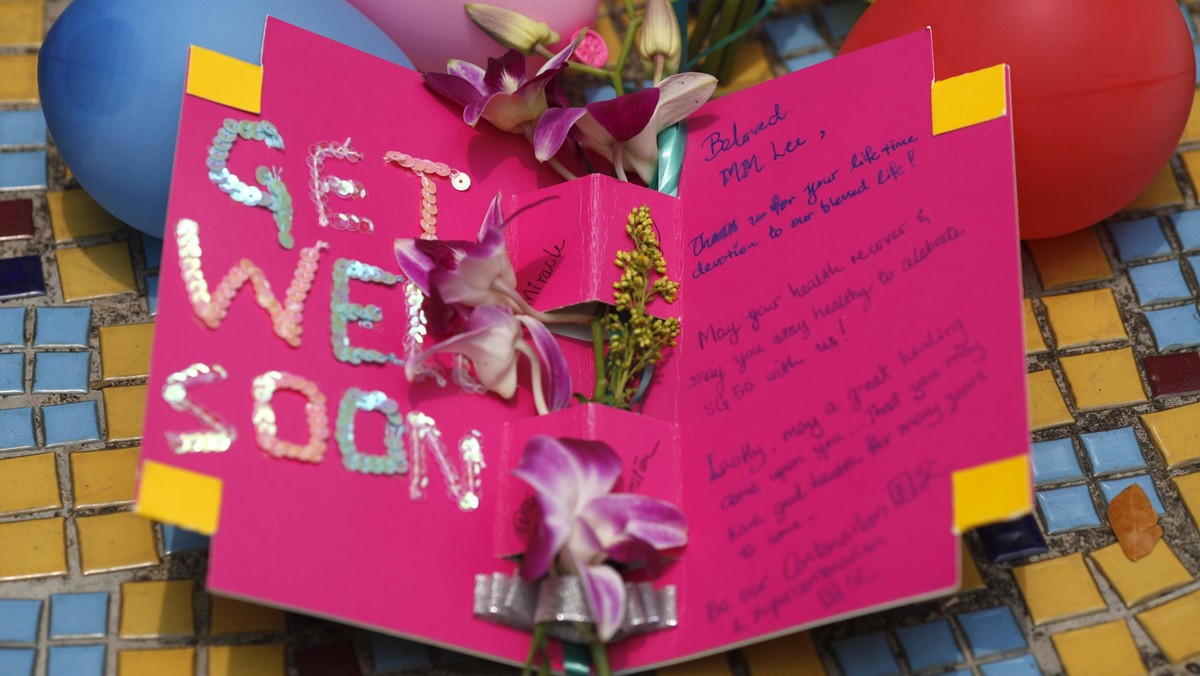 GET
WELL
SOON
miracle
Beloved
MM Lee,
Thank u for your lifetime
devotion to our blessed life!
May your health recover &
may you stay healthy to celebrate
SG 50 with us!
Lastly, may a great healing
come upon you... That you may
have good health for many years
to come.
Be our Centenarian
& supercentenarian